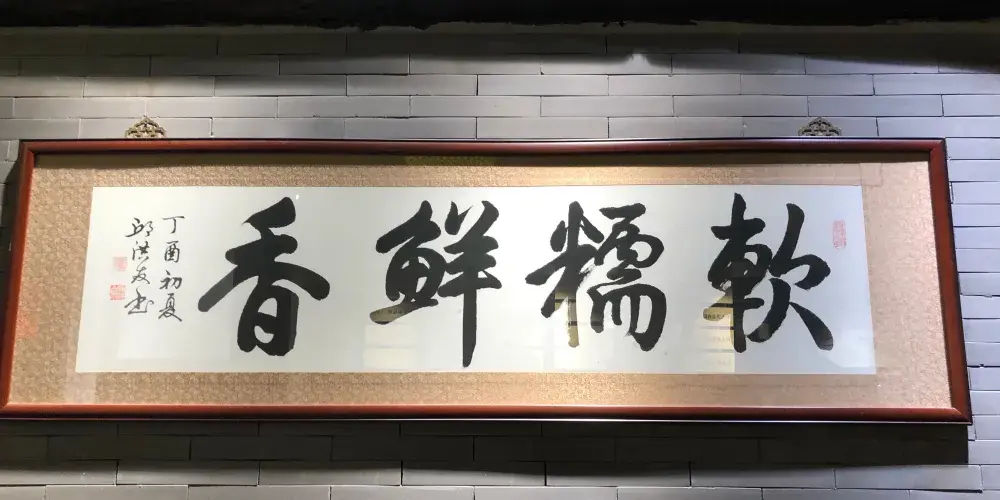 軟糯鮮香
丁酉初夏
邱洪友书